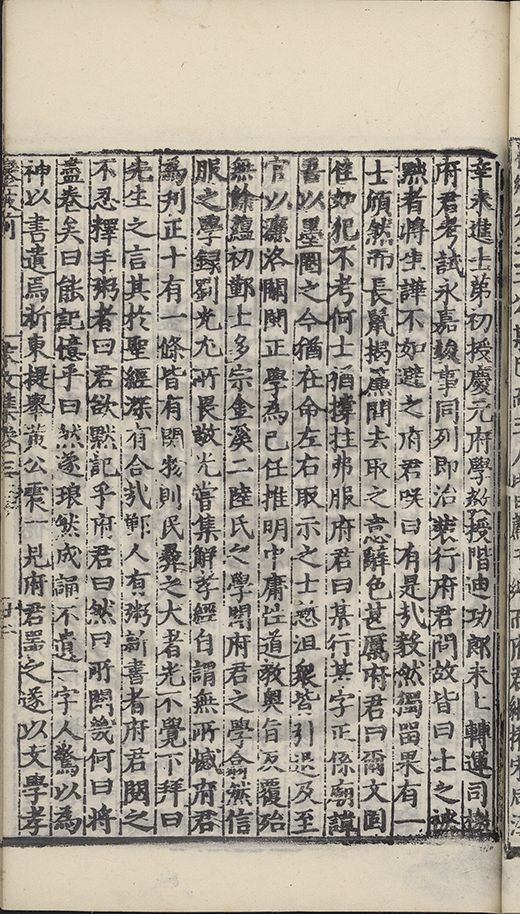 辛未進士第初授慶元府學教授階迪功郎未上轉運司檄
府君考試永嘉竣事同列即治裝行府君問故皆曰士之被
黜者將生譁不如避之府君咲曰有是㢤敎然獨畱果有一
士頎然而長鼠揭簾閒去取之意辭色甚厲府君曰爾文固
佳如犯不考何士猶撐拄弗服府君曰某行某字正係廟諱
吾以墨圈之今猶在命左右取示之士恐沮衆皆引退及至
官以濂洛關閩正學爲己任推明中庸性道敎奧旨反覆殆
無餘蘊初鄞士多宗金溪二陸氏之學聞府君之學翕然信
服之學錄劉光尤所畏敬光嘗集解孝經自謂無所憾府君
爲刋正十有一條皆有關物則民彝之大者光不覺下拜曰
先生之言其於聖經深有合㢤鄞人有粥新書者府君閱之
不忍釋手粥者曰君欲黙記乎府君曰然曰所閱幾何曰將
盡卷矣曰能記憶乎曰然遂琅然成誦不遺一字人驚以爲
神以書遺焉浙東提舉黃公震一見府君噐之遂以文學孝